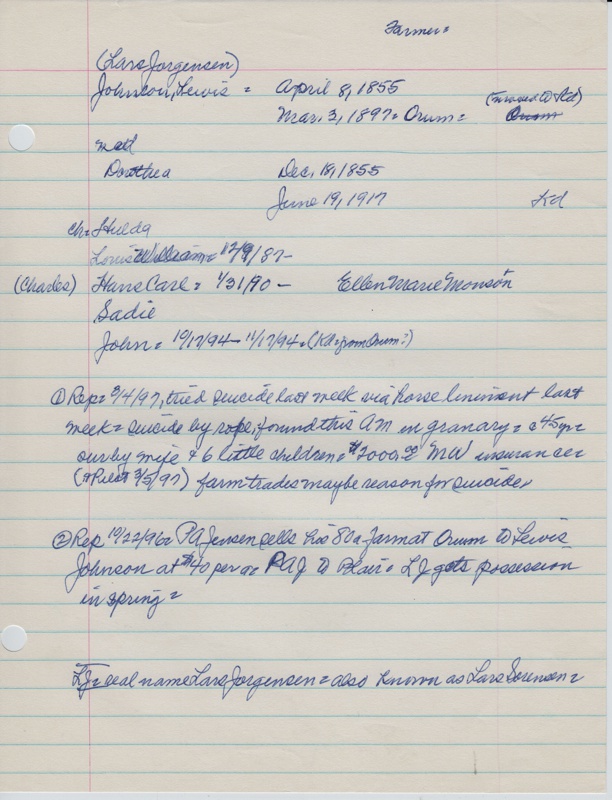 Farmer=
(Lars Jorgensen)
Johnson, Lewis = April 8, 1855
(moved to Kd)
Mar. 3, 1897= Orum= Orum
Dorthea Dec. 18, 1855
June 19, 1917 Kd
ch= Hulda
Louis William= 12/9/87-
(Charles) Hans Carl= 1/31/90 - Ellen Marie Monson
Sadie
John= 10/17/94- 11/17/94= (Kd= from Orum?)
① Rep= 3/4/97, tried suicide last week via horse liniment last
week= suicide by rope, found this AM in granary= c 45 yr=
sur by wife + 6 little children= $2000.00 MW insurance=
(+ Pilot 3/5/97) farm trades maybe reason for suicide=
② Rep 10/22/96= PA Jensen sells his 80 a farm at Orum to Lewis
Johnson at $40 per a= PAJ to Blair= LJ gets possession
in spring=
LJ= real name Lars Jorgensen= also known as Lars Sorensen=